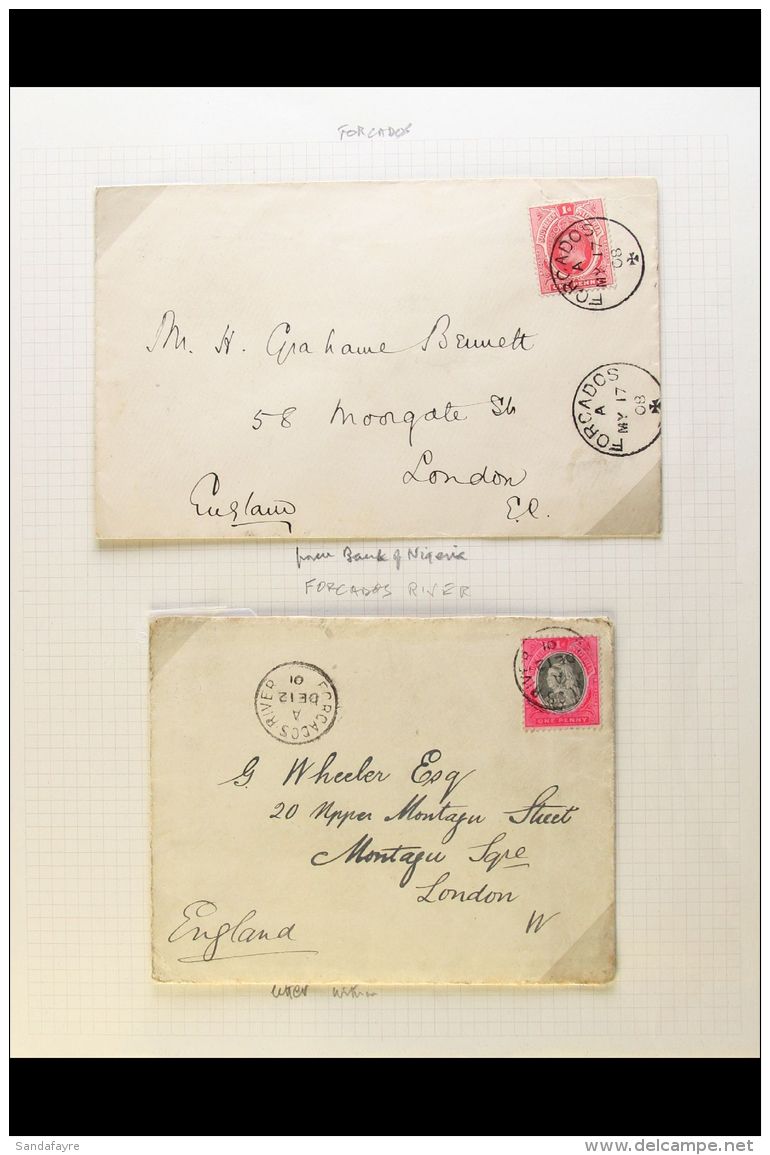 FORCADOS
1d
FORCADOS
A
MY 17
08
Mr. H. Grahame Bennett
FORCADOS
A
MY 17
08
58 Moorgate St.
London
England
E.C.
from Bank of Nigeria
FORCADOS RIVER
FORCADOS RIVER
A
DE 12
01
RIVER
ONE PENNY
G. Wheeler Esq
20 Upper Montagu Street
Montagu Sqre
London
W
England
letter within
Sandafayre
delcampe.net